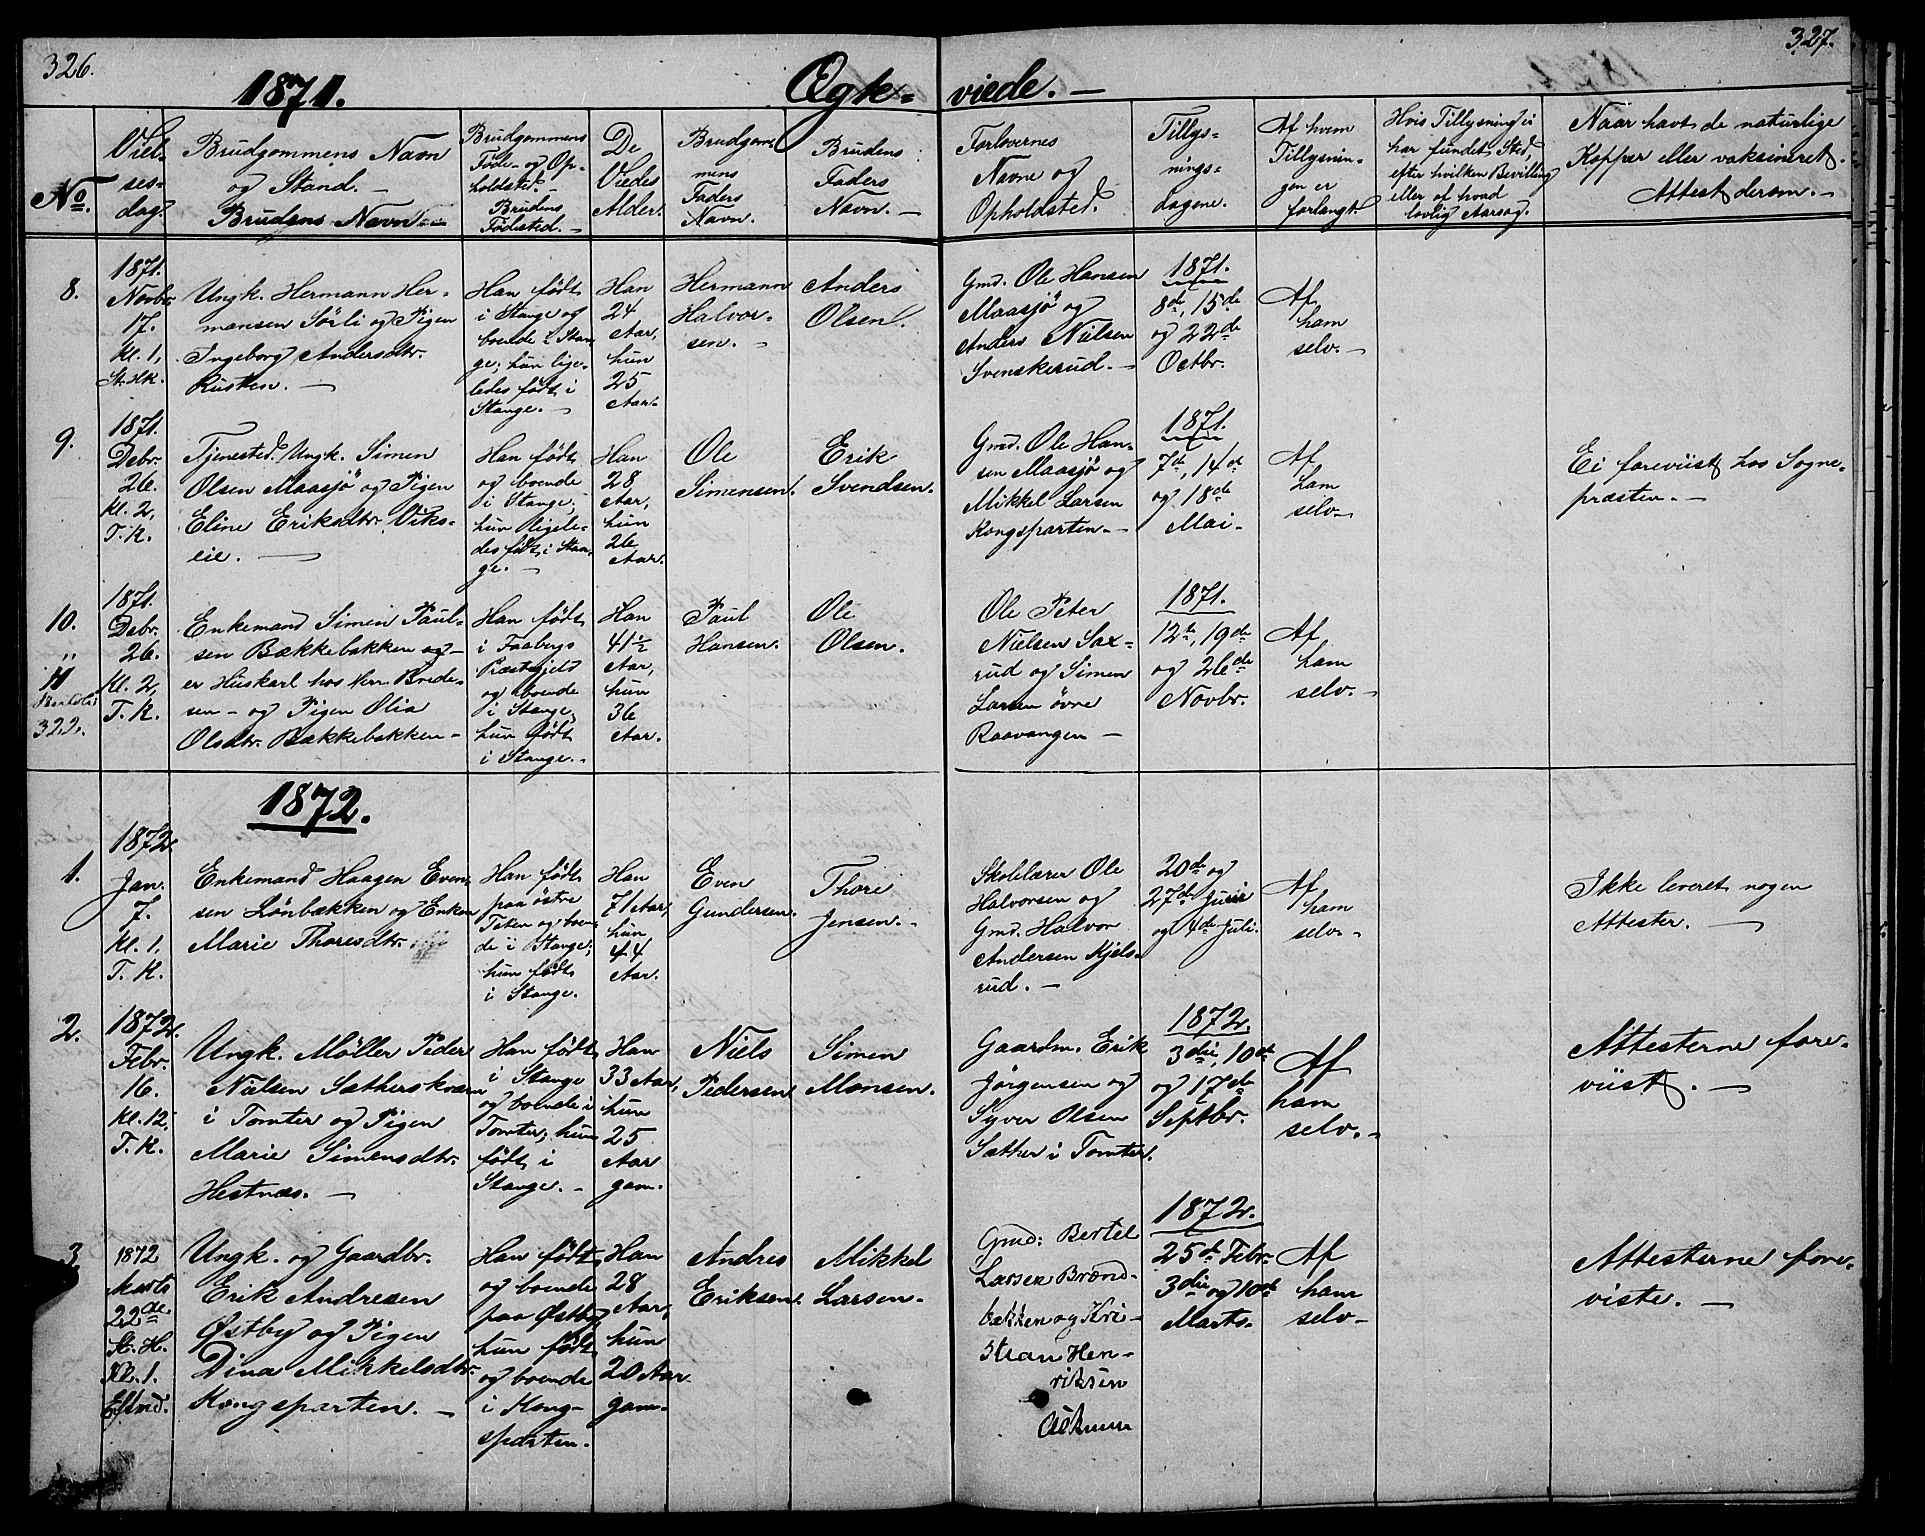 326.
327.
1871.
Ægte-
viede. -
No.
Viel-
ses-
dag.
Brudgommens Navn
og Stand. -
Brudens Navn. -
Brudgommens
Føde- og Op-
holdsted. -
Brudens
Fødested. -
De
Viedes
Alder.
Brudgom-
mens
Faders
Navn.
Brudens
Faders
Navn. -
Forlovernes
Navne og
Opholdsted.
Tillys-
nings-
dagene.
Af hvem
Tillysnin-
gen er
forlangt.
Hvis Tillysning ei
har fundet Sted,
efter hvilken Bevilling
eller af hvad
lovlig Aarsag.
Naar havt de naturlige
Kopper eller vaksineret.
Attest derom. -
8.
1871.
Novbr.
17.
Kl. 1,
St. HK.
Ungk. Hermann Her-
mansen Sörli og Pigen
Ingeborg Andersdtr.
Rusten. -
Han født
i Stange og
boende i Stan-
ge; hun lige-
ledes født i
Stange. -
Han
24
Aar,
hun
25
Aar.
Hermann
Halvor-
sen. -
Anders
Olsen.
Gmd. Ole Hansen
Maasjö og
Anders Nilsen
Svenskerud. -
1871.
8de, 15de
og 22de
Octbr.
Af
ham
selv. -
9.
1871.
Debr.
26.
Kl. 2,
T. K.
Tjenested. Ungk. Simen
Olsen Maasjö og Pigen
Eline Eriksdtr. Viks-
eie. -
Han født
og boende
i Stange;
hun ligele-
des født i Stan-
ge. -
Han
28
Aar,
hun
26
Aar.
Ole
Simensen.
Erik
Svendsen.
Gmd. Ole Han-
sen Maasjö og
Mikkel Larsen
Kongsparten. -
1871.
7de, 14de
og 18de
Mai. -
Af
ham
selv. -
Ei foreviist hos Sogne-
præsten. -
10.
"
11
322.
1871.
Debr.
26.
Kl. 2,
T. K.
Enkemand Simen Paul-
sen Bækkebakken og -
er Huskarl hos Hrr. Brede-
sen - og Pigen Olia
Olsdtr. Bækkebakken -
Han født
i Faabergs
Præstegjeld
og boende
i Stange;
hun født
i Stange. -
Han
41½
Aar,
hun
36
Aar.
Paul
Hansen.
Ole
Olsen.
Ole Peter
Nielsen Sax-
rud og Simen
Larsen övre
Raavangen -
1871.
12te, 19de
og 26de
Novbr.
Af
ham
selv. -
1872.
1.
1872.
Jan.
7.
Kl. 1,
T. K.
Enkemand Haagen Even-
sen Lönbækken og Enken
Marie Thoresdtr.
Han født
paa östre
Toten og boen-
de i Stange;
hun født
i Stange.
Han
71 Aar,
hun
44
Aar.
Even
Gundersen.
Thore
Jensen. -
Skolelærer Ole
Halvorsen og
Gmd. Halvor
Andersen Kjels-
rud. -
20de og
27de Juni
og 4de Juli.
Af
ham
selv. -
Ikke leveret nogen
Attester. -
2.
1872.
Febr.
16.
Kl. 12,
T. K.
Ungk. Möller Peder
Nielsen Sætherskværn
i Tomter og Pigen
Marie Simensdtr.
Hestnæs. -
Han født
i Stange
og boende i
Tomter; hun
født i
Stange. -
Han
33 Aar,
hun
25
Aar
gam.
Niels
Pedersen
Simen
Monsen.
Gaardm. Erik
Jörgensen og
Syver Olsen
Sæther i Tomter.
1872.
3die, 10de
og 17de
Septbr.
Af
ham
selv. -
Attesterne fore-
viist. -
3.
1872
Marts
22de
St. H.
Kl. 1.
Eftmd.
Ungk. og Gaardbr.
Erik Andresen
Østby og Pigen
Dina Mikkelsdtr.
Kongsparten. -
Han født
og boende
paa Østby
hun født
og boende
i Kong-
sparten.
Han
28
Aar,
hun
20 Aar
gam.
Andres
Eriksen.
Mikkel
Larsen.
Gmd: Bertel
Larsen Brænd-
bækken og Kri-
stian Hen-
riksen
1872.
25de Febr.
3die og 10de
Marts.
Af
ham
selv -
Attesterne fore-
viste. -